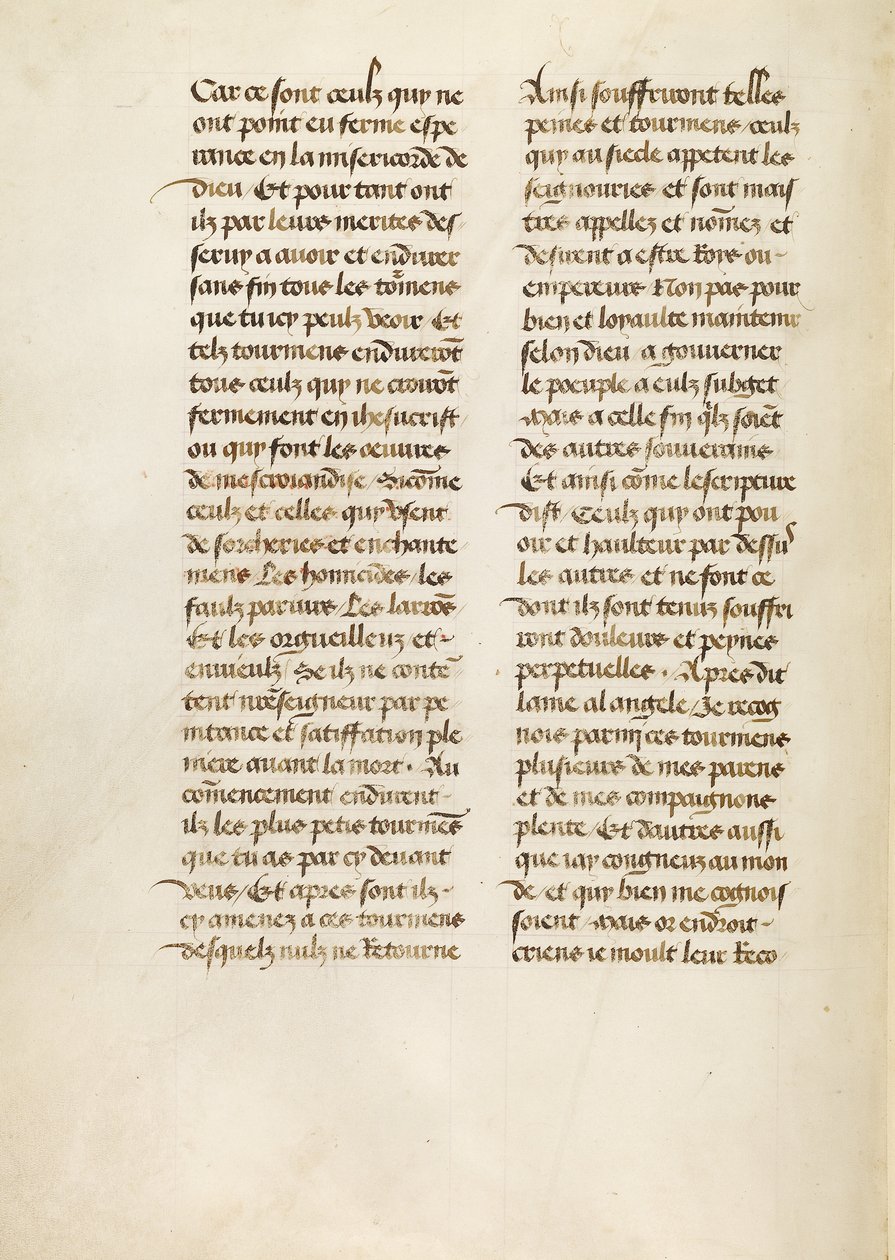 Car ce sont ceulz quy ne
ont point eu ferme espe
rance en la misericorde de
dieu / Et pour tant ont
ilz par leurs merites des
seruy a auoir et endurer
sans fin tous les to᷑mens
que tu icy peulz veoir / Et
telz tourmens endurerōt
tous ceulz quy ne croiōt
fermement en ihesucrist
ou quy font les oeuures
de mescroiandise / Sicōme
ceulz et celles quy vsent
de sorcheries et enchante
mens / Les homicides / les
faulz pariurs / Les larrōs /
Et les orgueilleuz / et
enuieulz / Se ilz ne contē
tent nr̄e seigneur par pe
nitance et satiffation ple
niere auant la mort . Au
cōmencement endurent
ilz les plus petis tourmēs
que tu as par cy deuant
veus / Et apres sont ilz
cy amenez a ces tourmens
desquelz nulz ne Retourne
Ainsi souffriront telles
peines et tourmens / ceulz
quy au siecle appetent les
seignouries et sont mais
tres appellez et nōmez et
desirent a estre Roys ou
empereurs / Non pas pour
bien et loyaulte maintenir
selon dieu / a gouuerner
le poeuple a eulz subget
Mais a celle fin q̄lz soiēt
des autres souuerains
Et ainsi cōme lescripture
dist / Ceulz quy ont pou
oir et haulteur par dessus
les autres et ne font ce
dont ilz sont tenuz souffri
ront douleurs et peynes
perpetuelles . Apres dit
lame al angele / Je recog
nois parmy ces tourmens
plusieurs de mes parens
et de mes compaignons
plente / Et dautres aussi
que iay congneuz au mon
de / et quy bien me cognois
soient / Mais or endroit
criens ie moult leur Reco